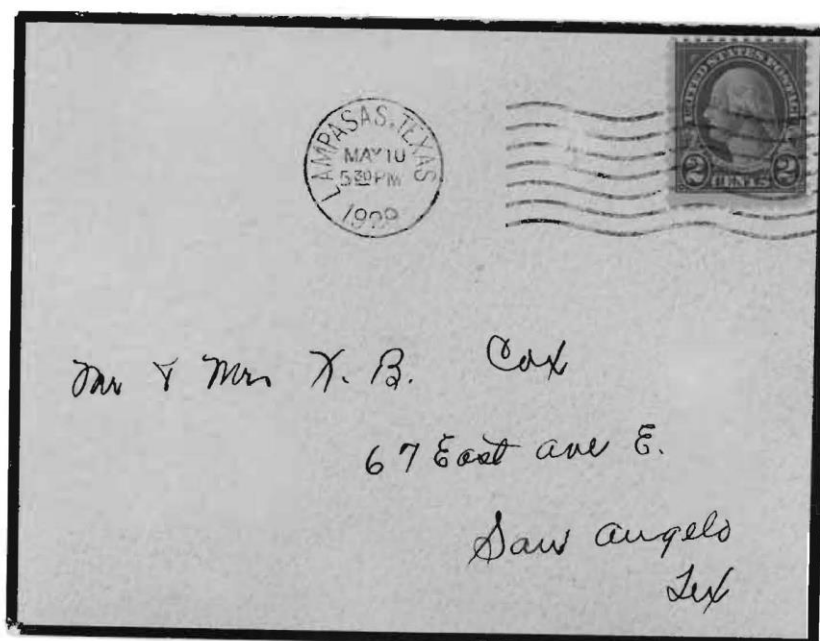 LAMPASAS, TEXAS
MAY 10
5 30 PM
UNITED STATES POSTAGE
2 CENTS 2
Mr & Mrs X. B. Cox
67 East ave E.
San Angelo
Tex